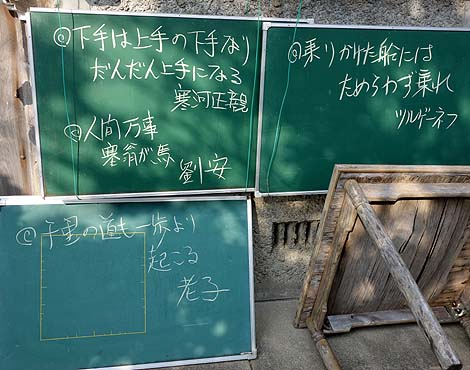 ◎下手は上手の下手なり
だんだん上手になる
寒河正観
◎人間万事
塞翁が馬
劉安
◎乗りかけた船には
ためらわず乗れ
ツルゲーネフ
◎千里の道も一歩より
起こる
老子